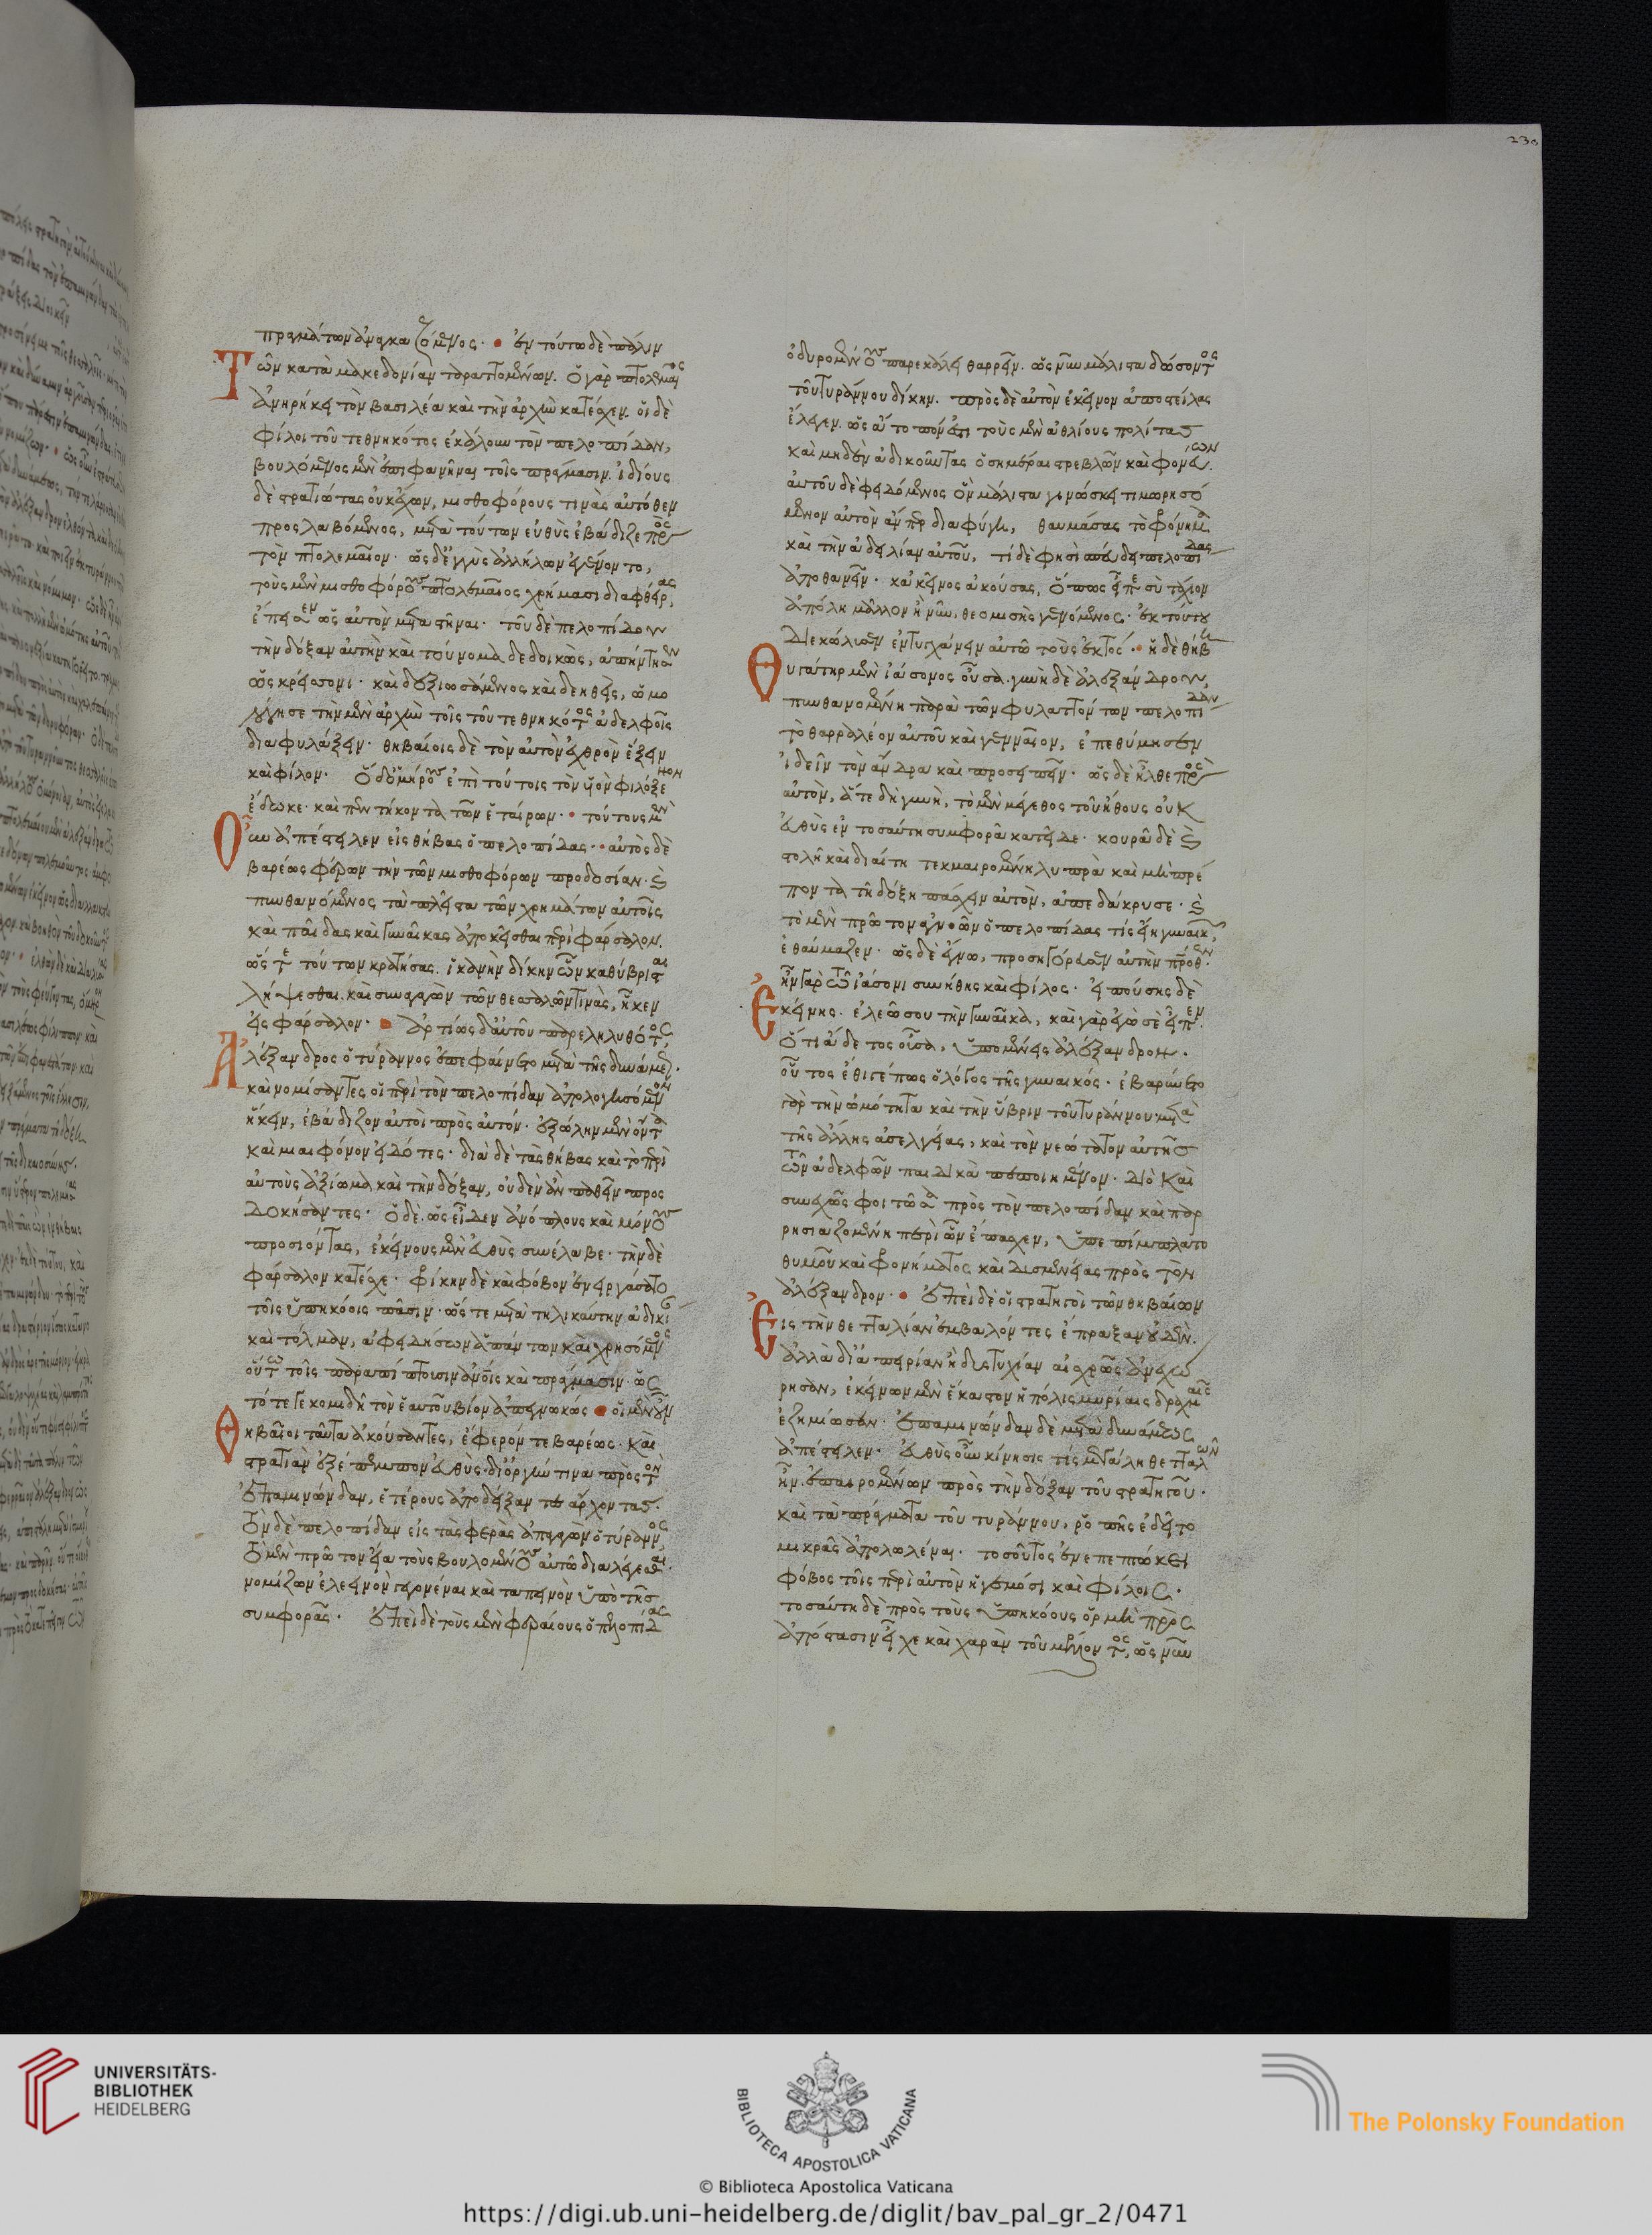 230
πραγμάτων ἀναγκαζόμενος· ἐν τούτω δὲ πάλιν
Τῶν κατὰ μακεδονίαν ταραττομένων. ὁ γὰρ πτολεμαῖος
ἀνηρήκει τὸν βασιλέα καὶ τὴν ἀρχὴν κατέσχεν. οἱ δὲ
φίλοι τοῦ τεθνηκότος ἐκάλουν τὸν πελοπίδαν,
βουλόμενος μὲν ἐπιφανῆναι τοῖς πράγμασιν. ἰδίους
δὲ στρατιώτας οὐκ ἔχων, μισθοφόρους τινὰς αὐτόθεν
προσλαβόμενος, μετὰ τούτων εὐθὺς ἐβάδιζε πρὸς
τὸν πτολεμαῖον. ὡς δ' ἐγγὺς ἀλλήλων ἐγένοντο,
τοὺς μὲν μισθοφόρους πτολεμαῖος χρήμασι διαφθείρας,
ἔπεισεν ὡς αὐτὸν μεταστῆναι. τοῦ δὲ πελοπίδου
τὴν δόξαν αὐτὴν καὶ τοὔνομα δεδοικὼς, ἀπήντησεν
ὡς κρείσσονι. καὶ δεξιωσάμενος καὶ δεηθεὶς, ὡμο
λόγησε τὴν μὲν ἀρχὴν τοῖς τοῦ τεθνηκότος ἀδελφοῖς
διαφυλάξειν. θηβαίοις δὲ τὸν αὐτὸν ἐχθρὸν ἕξειν
καὶ φίλον. ὁ δ' ὁμήρους ἐπὶ τούτοις τὸν υἱὸν φιλόξενον
ἔδωκε. καὶ πεντήκοντα τῶν ἑταίρων· τούτους μὲν
Οὖν ἀπέστειλεν εἰς θήβας ὁ πελοπίδας· αὐτὸς δὲ
βαρέως φέρων τὴν τῶν μισθοφόρων προδοσίαν. καὶ
πυνθανόμενος τὰ πλεῖστα τῶν χρημάτων αὐτοῖς
καὶ παῖδας καὶ γυναῖκας ἀποκεῖσθαι περὶ φάρσαλον.
ὥστε τούτων κρατήσας. ἱκανὴν δίκην ὧν καθύβρισται
λήψεσθαι. καὶ συναγαγὼν τῶν θεσσαλῶν τινὰς, ἧκεν
εἰς φάρσαλον· ἀρτίως δ' αὐτοῦ παρεληλυθότος
Ἀλέξανδρος ὁ τύραννος ἐπεφαίνετο μετὰ τῆς δυνάμεως.
καὶ νομίσαντες οἱ περὶ τὸν πελοπίδαν ἀπολογησόμενον
ἥκειν, ἐβάδιζον αὐτοὶ πρὸς αὐτόν. ἐξώλην μὲν ὄντα
καὶ μιαιφόνον εἰδότες. διὰ δὲ τὰς θήβας καὶ τὸ περὶ
αὐτοὺς ἀξίωμα καὶ τὴν δόξαν, οὐδὲν ἂν παθεῖν προσ
δοκήσαντες. ὁ δὲ. ὡς εἶδεν ἀνόπλους καὶ μόνους
προσιόντας, ἐκείνους μὲν εὐθὺς συνέλαβε. τὴν δὲ
φάρσαλον κατέσχε. φρίκην δὲ καὶ φόβον ἐνειργάσατο
τοῖς ὑπηκόοις πᾶσιν. ὥς γε μετὰ τηλικαύτην ἀδικίαν
καὶ τόλμαν, ἀφειδήσων ἁπάντων καὶ χρησόμενος
οὕτω τοῖς παραπίπτουσιν ἀνθρώποις καὶ πράγμασιν. ὡς
τότε γε κομιδῆ τὸν ἑαυτοῦ βίον ἀπεγνωκώς· οἱ μὲν οὖν
Θηβαῖοι ταῦτα ἀκούσαντες, ἔφερόν τε βαρέως. καὶ
στρατιὰν ἐξέπεμπον εὐθὺς. δι' ὀργήν τινα πρὸς τὸν
ἐπαμινώνδαν, ἑτέρους ἀποδείξαντες ἄρχοντας.
τὸν δὲ πελοπίδαν εἰς τὰς φερὰς ἀπαγαγὼν ὁ τύραννος
τὸ μὲν πρῶτον εἴα τοὺς βουλομένους αὐτῶ διαλέγεσθαι.
νομίζων ἐλεεινὸν γεγονέναι καὶ ταπεινὸν ὑπὸ τῆς
συμφορᾶς. ἐπεὶ δὲ τοὺς μὲν φεραίους ὁ πελοπίδας
ὀδυρομένους παρεκάλει θαρρεῖν. ὡς νῦν μάλιστα δώσοντος
τοῦ τυράννου δίκην. πρὸς δὲ αὐτὸν ἐκεῖνον ἀποστείλας
ἔλεγεν. ὡς ἄτοπόν ἐστι τοὺς μὲν ἀθλίους πολίτας
καὶ μηδὲν ἀδικοῦντας ὁσημέραι στρεβλῶν καὶ φονεύων.
αὐτοῦ δὲ φειδόμενος ὃν μάλιστα γινώσκει τιμωρησό
μενον αὐτὸν ἄνπερ διαφύγη, θαυμάσας τὸ φρόνημα
καὶ τὴν ἄδειαν αὐτοῦ, τί δὲ φησὶ σπεύδει πελοπίδας
ἀποθανεῖν. κἀκεῖνος ἀκούσας, ὅπως εἶπε σὺ τάχιον
ἀπόλη μᾶλλον ἢ νῦν, θεομισὴς γενόμενος. ἐκ τούτου
διεκώλυσεν ἐντυγχάνειν αὐτῶ τοὺς ἐκτός· ἡ δὲ θήβη
Θυγάτηρ μὲν ἰάσονος οὖσα. γυνὴ δὲ ἀλεξάνδρου,
πυνθανομένη παρὰ τῶν φυλαττόντων πελοπίδαν
τὸ θαρραλέον αὐτοῦ καὶ γενναῖον, ἐπεθύμησεν
ἰδεῖν τὸν ἄνδρα καὶ προσειπεῖν. ὡς δὲ ἦλθε πρὸς
αὐτὸν, ἅτε δὴ γυνὴ, τὸ μὲν μέγεθος τοῦ ἤθους οὐκ
εὐθὺς ἐν τοσαύτη συμφορᾶ κατεῖδε. κουρᾶ δὲ καὶ
στολῆ καὶ διαίτη τεκμαιρομένη λυπρὰ καὶ μὴ πρέ
ποντα τῆ δόξη πάσχειν αὐτὸν, ἀπεδάκρυσε. καὶ
τὸ μὲν πρῶτον ἀγνοῶν ὁ πελοπίδας τίς εἴη γυναικῶν,
ἐθαύμαζεν. ὡς δὲ ἔγνω, προσηγόρευσεν αὐτὴν πατρόθεν.
ἦν γὰρ τῶ ἰάσονι συνήθης καὶ φίλος. εἰπούσης δὲ
Ἐκείνης. ἐλεῶ σου τὴν γυναῖκα, καὶ γὰρ ἐγὼ σὲ εἶπεν
ὅτι ἄδετος οὖσα, ὑπομένεις ἀλέξανδρον.
οὗτος ἔθιγέ πως ὁ λόγος τῆς γυναικός. ἐβαρύνετο
γὰρ τὴν ὠμότητα καὶ τὴν ὕβριν τοῦ τυράννου μετὰ
τῆς ἄλλης ἀσελγείας, καὶ τὸν νεώτατον αὐτῆς
τῶν ἀδελφῶν παιδικὰ πεποιημένου. διὸ καὶ
συνεχῶς φοιτῶσα πρὸς τὸν πελοπίδαν καὶ παρ
ρησιαζομένη περὶ ὧν ἔπασχεν, ὑπεπίμπλατο
θυμοῦ καὶ φρονήματος καὶ δυσμενείας πρὸς τὸν
ἀλέξανδρον· ἐπεὶ δὲ οἱ στρατηγοὶ τῶν θηβαίων
Εἰς τὴν θετταλίαν ἐμβαλόντες ἔπραξαν οὐδὲν.
ἀλλὰ δι' ἀπειρίαν ἢ δυστυχίαν αἰσχρῶς ἀνεχώ
ρησαν, ἐκείνων μὲν ἕκαστον ἡ πόλις μυρίαις δραχμαῖς
ἐζημίωσεν. ἐπαμινώνδαν δὲ μετὰ δυνάμεως
ἀπέστειλεν. εὐθὺς οὖν κίνησίς τις μεγάλη θετταλῶν
ἦν. ἐπαιρομένων πρὸς τὴν δόξαν τοῦ στρατηγοῦ.
καὶ τὰ πράγματα τοῦ τυράννου, ῥοπῆς ἐδεῖτο
μικρᾶς ἀπολωλέναι. τοσοῦτος ἐνεπεπτώκει
φόβος τοῖς περὶ αὐτὸν ἡγεμόσι καὶ φίλοις.
τοσαύτη δὲ πρὸς τοὺς ὑπηκόους ὁρμὴ πρὸς
ἀπόστασιν εἶχε καὶ χαρὰν τοῦ μέλλοντος, ὡς νῦν
UNIVERSITÄTS-
BIBLIOTHEK
HEIDELBERG
BIBLIOTECA APOSTOLICA VATICANA
The Polonsky Foundation
© Biblioteca Apostolica Vaticana
https://digi.ub.uni-heidelberg.de/diglit/bav_pal_gr_2/0471